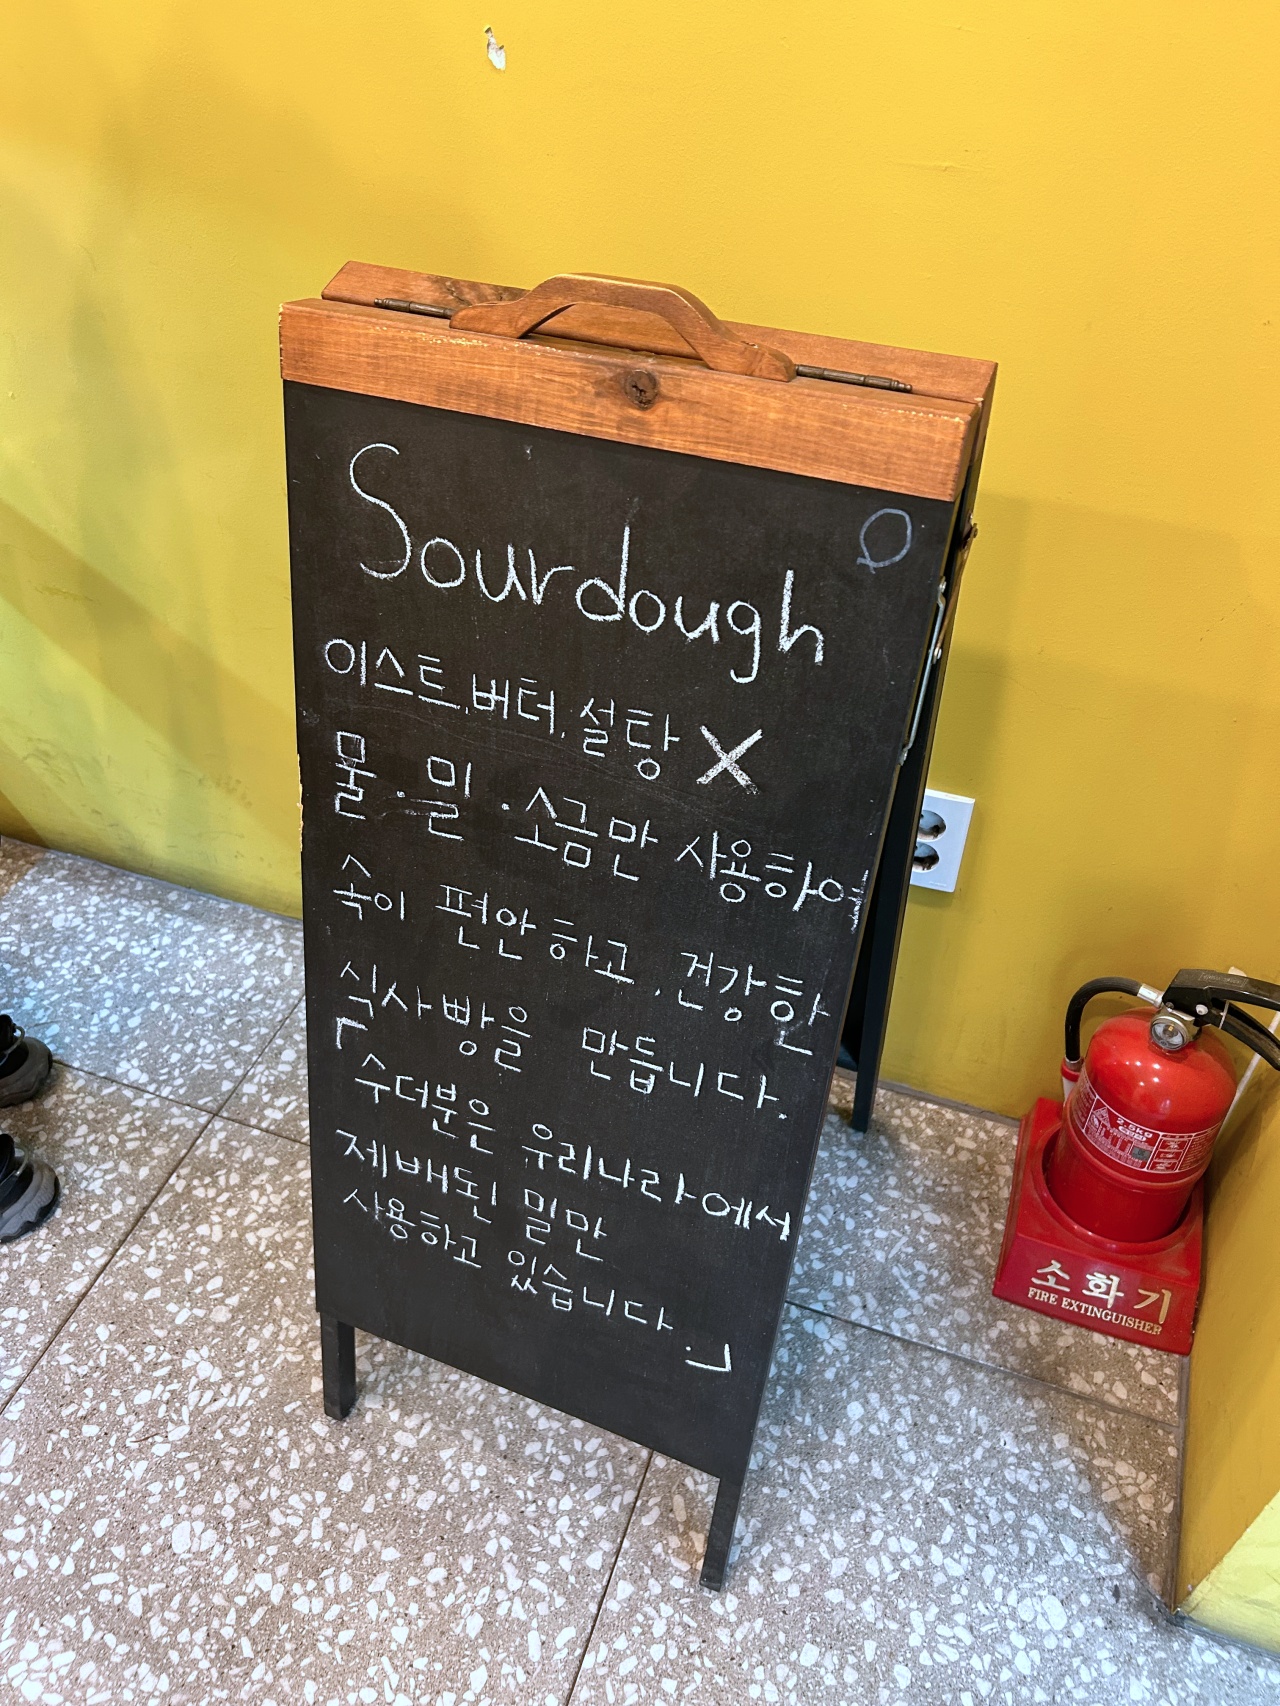 Sourdough
이스트, 버터, 설탕 X
물 · 밀 · 소금만 사용하여
속이 편안하고, 건강한
식사빵을 만듭니다.
「수더분은 우리나라에서
제배된 밀만
사용하고 있습니다.」
2.5kg
소화기
FIRE EXTINGUISHER